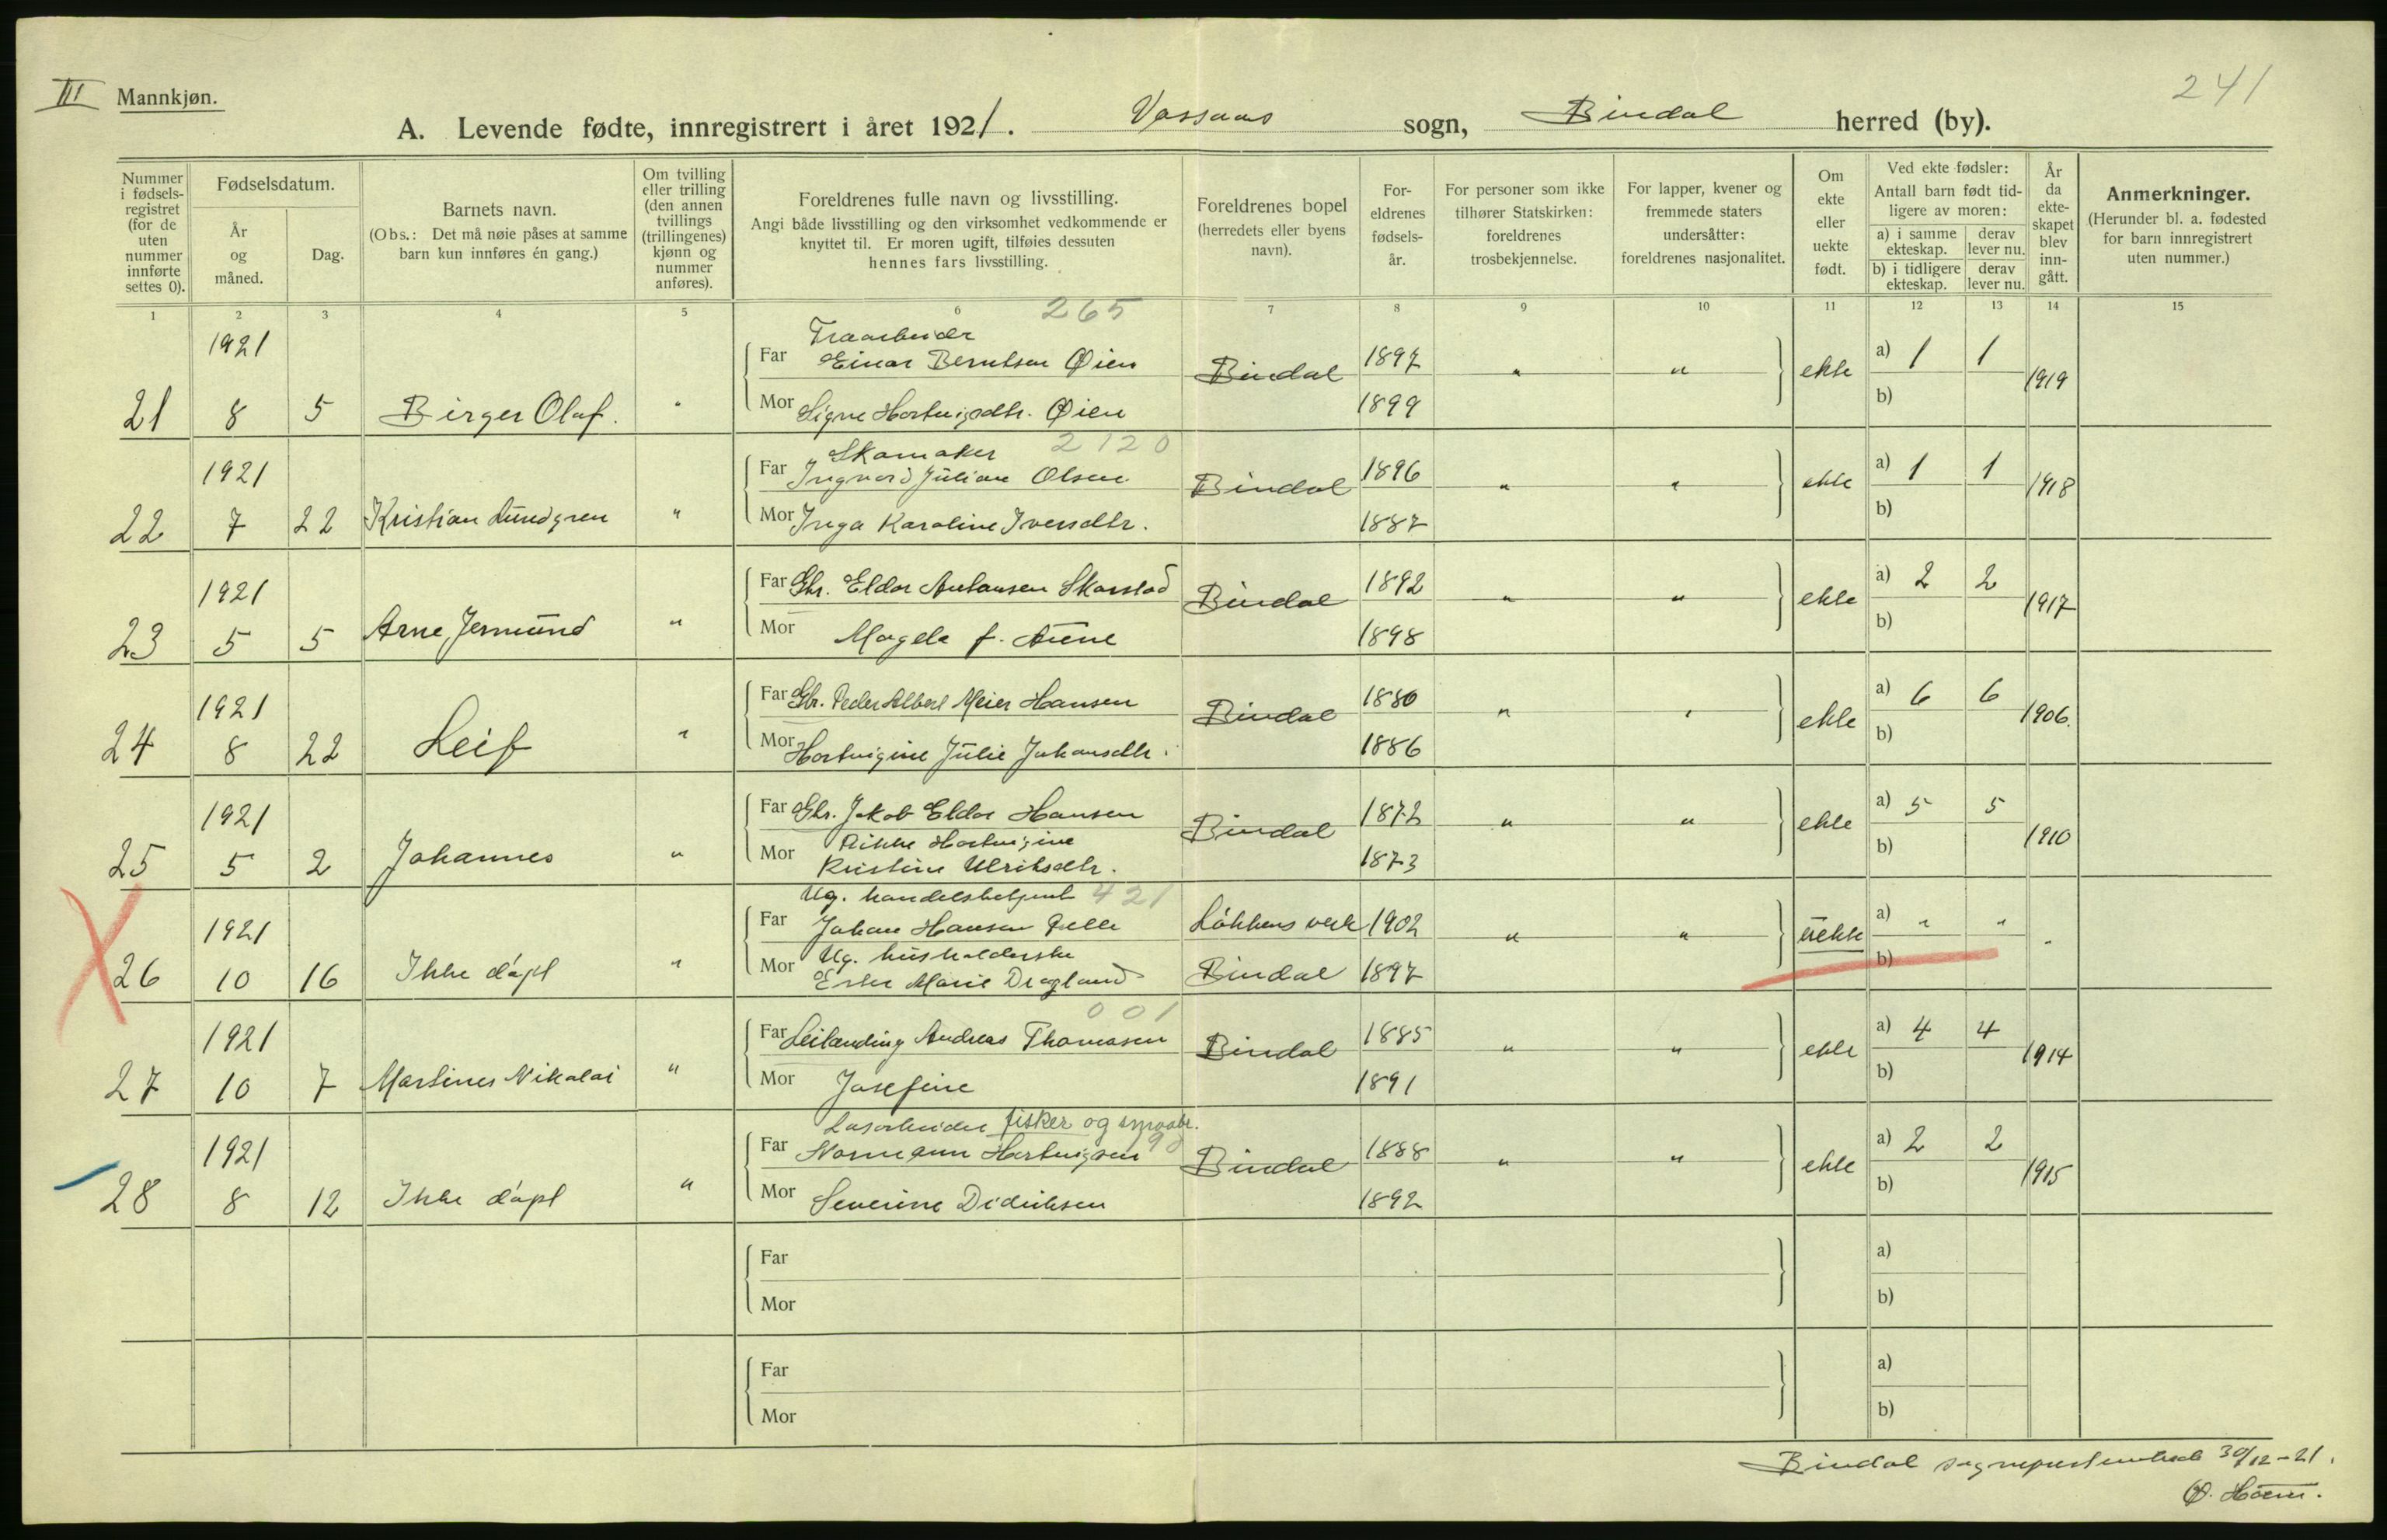 III Mannkjøn.
241
A. Levende fødte, innregistrert i året 1921. Vassaas sogn, Bindal herred (by).
Nummer i fødsels-registret (for de uten nummer innførte settes 0).
Fødselsdatum.
År og måned.
Dag.
Barnets navn.
(Obs.: Det må nøie påses at samme barn kun innføres én gang.)
Om tvilling eller trilling (den annen tvillings (trillingenes) kjønn og nummer anføres).
Foreldrenes fulle navn og livsstilling.
Angi både livsstilling og den virksomhet vedkommende er knyttet til. Er moren ugift, tilføies dessuten hennes fars livsstilling.
Foreldrenes bopel (herredets eller byens navn).
For-eldrenes fødsels-år.
For personer som ikke tilhører Statskirken: foreldrenes trosbekjennelse.
For lapper, kvener og fremmede staters undersåtter: foreldrenes nasjonalitet.
Om ekte eller uekte født.
Ved ekte fødsler: Antall barn født tid-ligere av moren:
a) i samme ekteskap. derav lever nu.
b) i tidligere ekteskap. derav lever nu.
År da ekte-skapet blev inn-gått.
Anmerkninger.
(Herunder bl. a. fødested for barn innregistrert uten nummer.)
1 2 3 4 5 6 7 8 9 10 11 12 13 14 15
265
1921 Traarbeider
Far Einar Berntsen Øien Bindal 1897 " " ekte a) 1 1 1919
21 8 5 Birger Olaf. " Mor Signe Hartvigsdtr. Øien 1899 b)
Skomaker 2120
1921 Far Ingvard Julian Olsen Bindal 1896 " " ekte a) 1 1 1918
22 7 22 Kristian Lundgren " Mor Inga Karoline Iversdtr. 1887 b)
1921 Far Gbr. Eldor Antonsen Skarstad Bindal 1892 " " ekte a) 2 2 1917
23 5 5 Arne Jermund " Mor Magda f. Aune 1898 b)
1921 Far Gbr. Peder Albert Meier Hansen Bindal 1880 " " ekte a) 6 6 1906.
24 8 22 Leif " Mor Hartvigine Julie Johansdtr. 1886 b)
1921 Far Gbr. Jakob Eldor Hansen Bindal 1872 " " ekte a) 5 5 1910
25 5 2 Johannes " Mor Rikke Hartvigine
Kristine Ulriksdtr. 1873 b)
Ug. handelsbetjent 421
1921 Far Johan Hansen Løkkens verk 1902 " " uekte a) " " "
Ug. husholderske
26 10 16 Ikke døpt " Mor Ester Marie Dragland Bindal 1897 b)
001
1921 Far Leilænding Andreas Thomasen Bindal 1885 " " ekte a) 4 4 1914
27 10 7 Martines Nikolai " Mor Josefine 1891 b)
Løsarbeider fisker og smaabr.
90
1921 Far Normann Hartvigsen Bindal 1888 " " ekte a) 2 2 1915
28 8 12 Ikke døpt " Mor Severine Didriksen 1892 b)
Far a)
Mor b)
Far a)
Mor b)
Bindal sogneprestembede 30/12-21.